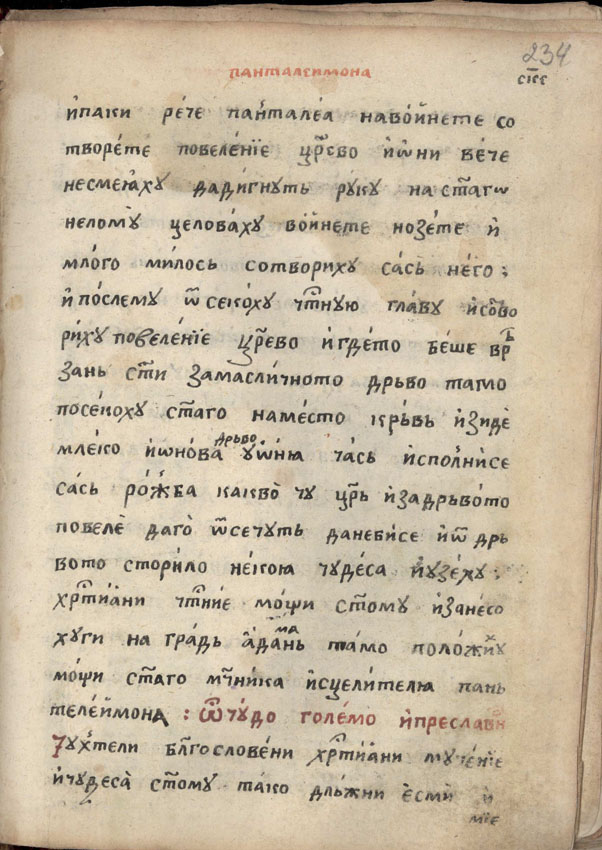 234
панталеимона
скє
и҆паки рѐче панталеа навои́нете со
творѐте повелѐнїе цр҃ево и҆ѡ҆ни вѐче
несмеꙗ҆ху дадигнуть руку на ст҃аго
нелому̀ целова́ху вои́нете нозѐте и҆
мло́го ми́лось сотвориху сась него :
и҆ по́слему ѿсеко́ху чт҃ную главу и҆ство
риху повелѐнїе цр҃ево и҆гдѐто бѐше врь
зань ст҃и замасличното дрьво тамо
посекоху ст҃аго намѐсто крьвь и҆зидѐ
млѐко и҆ѡ҆но́ва дрьво у҆ѡ҆нїа ча́сь и҆сполни́се
сась ро́жба какво̀ чу цр҃ь и҆задрьво́то
повелѐ даго̀ ѿсечуть данеби́се и҆ѿ дрь
вото сторило нѐкою чудѐса и҆узѐху :
хр҃тиꙗ҆ни чт҃нїе мо́щи ст҃ому и҆зане́со
ху҆ги на гра́дь а҆дама́нь та́мо поло́жиху
мо́щи ст҃аго мч҃ника и҆сцелителꙗ пань
телеи́мона : ѿчудо голѐмо и҆преславн
Чухтели бл҃гословѐни хр҃тиꙗ҆ни мучѐнїе
и҆чудеса̀ ст҃ому та́ко дльжни е҆сми и҆
мїе